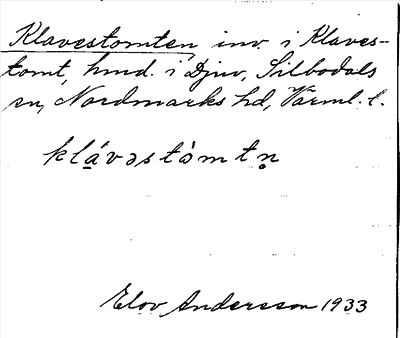 Klavestomten, inv. i Klaves-
tomt, hmd. i Djuv, Silbodals
sn, Nordmarks hd, Värml. l.
klá̱vəstòmtn̥
Elov Andersson 1933